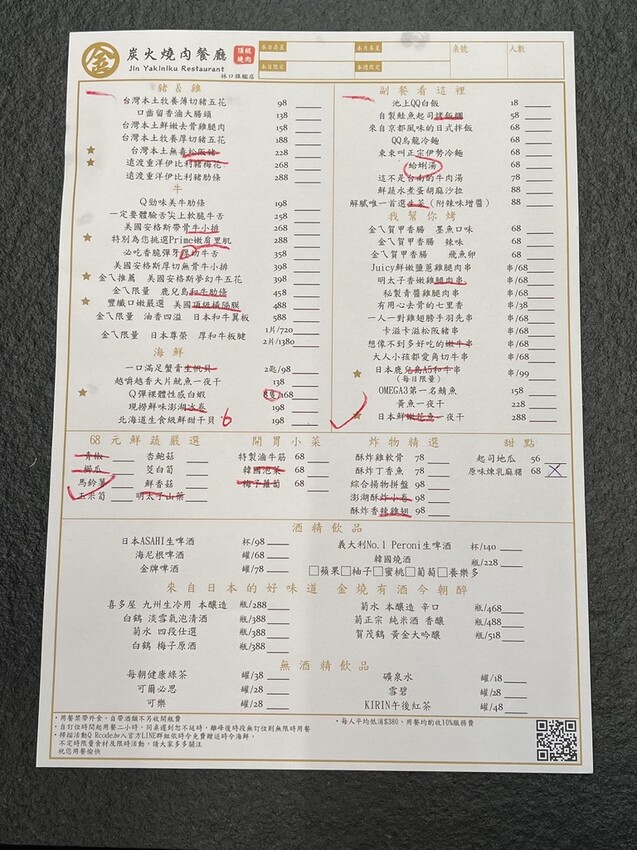 金
炭火燒肉餐廳 頂級燒肉
Jin Yakiniku Restaurant
林口旗艦店
本日壽星 本月壽星 桌號 人數
本日限定 本週限定
豬 & 雞
台灣本土牧養薄切豬五花 98
口齒留香滷大腸頭 138
台灣本土鮮嫩去骨雞腿肉 158
台灣本土牧養厚切豬五花 188
台灣本土無毒松阪豬 228
遠渡重洋伊比利豬梅花 268
遠渡重洋伊比利豬肋條 288
牛
Q勁味美牛肋條 198
一定要體驗舌尖上軟脆牛舌 258
美國安格斯帶骨牛小排 268
特別為您挑選Prime嫩肩里肌 288
必吃香脆彈牙厚切牛舌 358
美國安格斯厚切無骨牛小排 398
金八推薦 美國安格斯夢幻牛五花 398
金八限量 鹿兒島和牛肋條 458
豐纖口嫩嚴選 美國頂級橫隔膜 488
金八限量 油香四溢 日本和牛翼板 588
金八限量 日本尊榮 厚和牛板腱 1片/720
2片/1380
海鮮
一口滿足蟹膏生帆貝 198
越嚼越香大片魷魚一夜干 138
Q彈裸體性感白蝦 8隻/168
現撈鮮味澎湖冰卷 198
北海道生食級鮮甜干貝 6 198
副餐看這裡
池上QQ白飯 18
自製鮭魚起司烤飯糰 58
來自京都風味的日式拌飯 68
QQ烏龍冷麵 68
東東叫正宗伊勢冷麵 68
蛤蜊湯 68
這不是台南的牛肉湯 78
鮮蔬水煮蛋胡麻沙拉 88
解膩唯一首選生菜(附辣味增醬) 88
我幫你烤
金八賀甲香腸 墨魚口味 68
金八賀甲香腸 辣味 68
金八賀甲香腸 飛魚卵 68
Juicy鮮嫩鹽蔥雞腿肉串 串/68
明太子香嫩雞腿肉串 串/68
秘製青醬雞腿肉串 串/68
有用心去骨的七里香 串/38
一人一對雞翅膀手羽先串 串/68
卡滋卡滋松阪豬串 串/68
想像不到多好吃的嫩牛串 串/68
大人小孩都愛角切牛串 串/68
日本鹿兒島A5和牛串 串/99
(每日限量)
OMEGA3第一名鯖魚 158
黃魚一夜干 228
日本鮮嫩花魚一夜干 288
68 元鮮蔬嚴選
青椒 杏鮑菇
櫛瓜 茭白筍
馬鈴薯 鮮香菇
玉米筍 明太子山藥
開胃小菜
特製滷牛筋 68
韓國泡菜 68
梅子蘿蔔 68
炸物精選
酥炸雞軟骨 78
酥炸丁香魚 78
綜合揚物拼盤 98
澎湖酥炸小卷 98
酥炸香辣雞翅 98
甜點
起司地瓜 56
原味煉乳麻糬 68
酒精飲品
日本ASAHI生啤酒 杯/98
海尼根啤酒 罐/68
金牌啤酒 罐/78
義大利No.1 Peroni生啤酒 杯/140
韓國燒酒 瓶/228
□蘋果□柚子□蜜桃□葡萄□養樂多
來自日本的好味道 金燒有酒今朝醉
喜多屋 九州生冷用 本釀造 瓶/288
白鶴 淡雪氣泡清酒 瓶/388
菊水 四段仕選 瓶/388
白鶴 梅子原酒 瓶/388
菊水 本釀造 辛口 瓶/468
菊正宗 純米酒 香釀 瓶/488
賀茂鶴 黃金大吟釀 瓶/518
無酒精飲品
每朝健康綠茶 罐/38
可爾必思 罐/28
可樂 罐/28
礦泉水 罐/18
雪碧 罐/28
KIRIN午後紅茶 罐/48
•用餐禁帶外食，自帶酒類不另收開瓶費
•自訂位時間起用餐二小時，同桌遲到恕不延時，離峰後時段無訂位則無限時用餐
•掃描活動Q Rcode加入官方LINE群組依時令免費贈送時令海鮮，
不定時限量食材及限時活動，請大家多多關注
祝您用餐愉快
•每人平均低消$380、用餐均酌收10%服務費